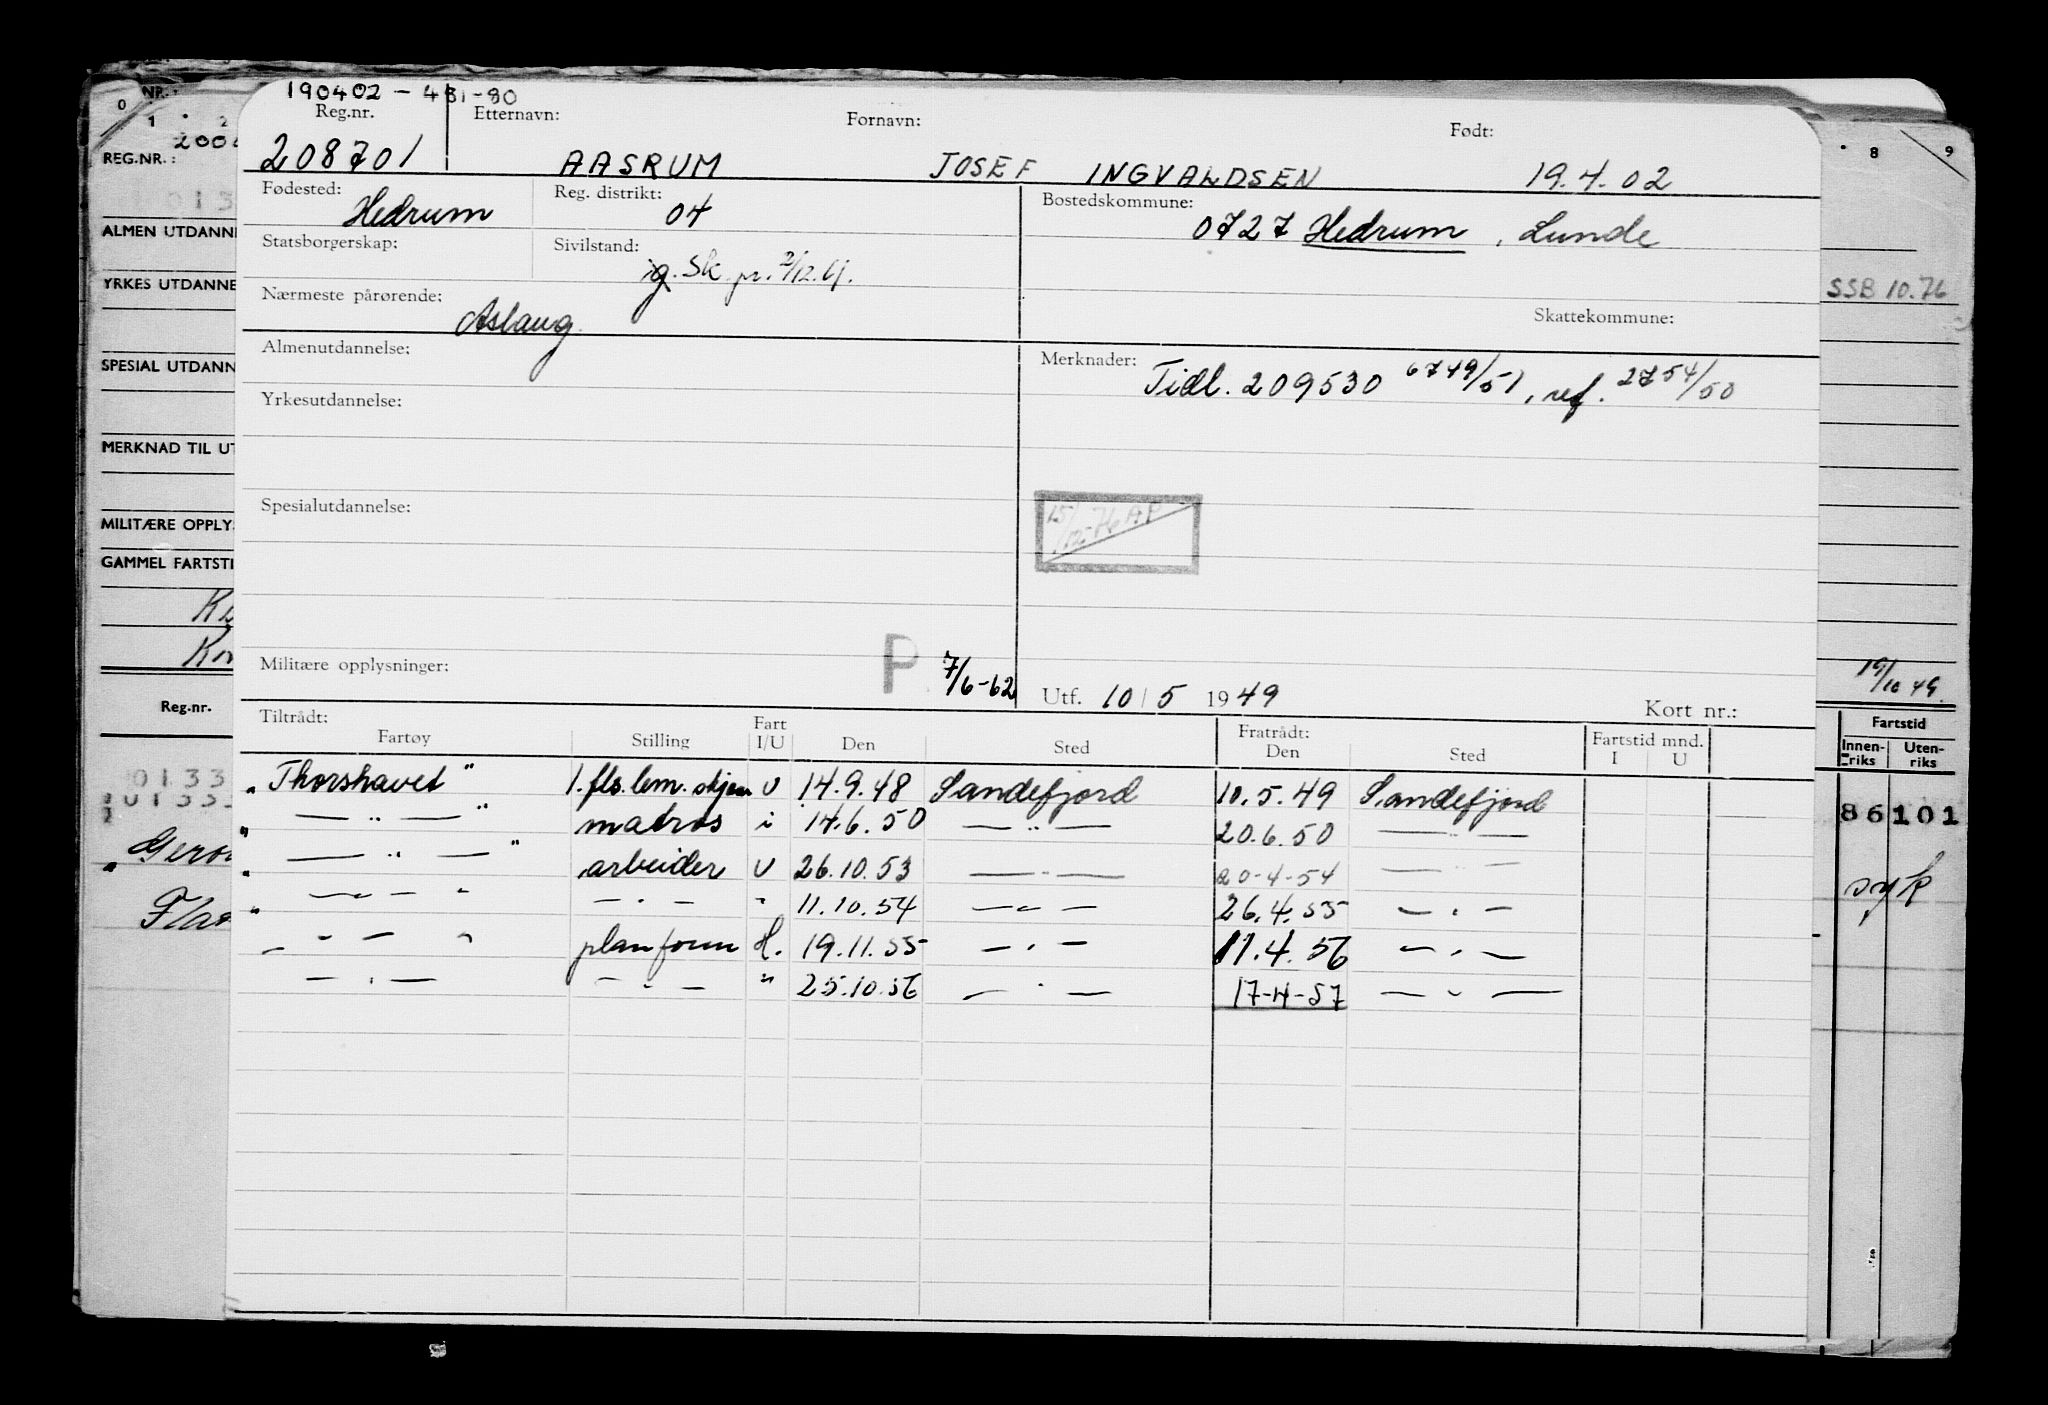 190402 - 431-80
Reg.nr. Etternavn: Fornavn: Født:
208701 AASRUM JOSEF INGVALDSEN 19.4.02
Fødested: Hedrum Reg. distrikt: 04 Bostedskommune: 0727 Hedrum, Lunde
Statsborgerskap: Sivilstand: ig. Sk pr. 2/12.
Nærmeste pårørende: Aslaug Skattekommune:
Almenutdannelse: Merknader: Tidl. 209530 6749/51, ref. 2754/50
Yrkesutdannelse:
Spesialutdannelse: 15/12-76 AP
Militære opplysninger: P 7/6-62 Utf. 10/5 1949 Kort nr.:
Tiltrådt: Fratrådt: Fartstid mnd.
Fartøy Stilling Fart I/U Den Sted Den Sted I U
"Thorshavet" 1. fls.lem. skjær U 14.9.48 Sandefjord 10.5.49 Sandefjord
" — " — " matros i 14.6.50 — " — 20.6.50 — " —
" — " — " arbeider U 26.10.53 — " — 20-4-54 — " —
" — " — " — " — " 11.10.54 — " — 26.4.55 — " —
" — " — " plan form H. 19.11.55 — " — 11.4.56 — " —
— " — — " — " 25.10.56 — " — 17-4-57 — " —
NR.:
0 1 2 8 9
REG.NR.:
ALMEN UTDANNE
YRKES UTDANNE
SSB 10.76
SPESIAL UTDANN
MERKNAD TIL UT
MILITÆRE OPPLYS
GAMMEL FARTSTI
19/10 49
Reg.nr. Fartstid
Innen-riks Uten-riks
0133
86101
syk